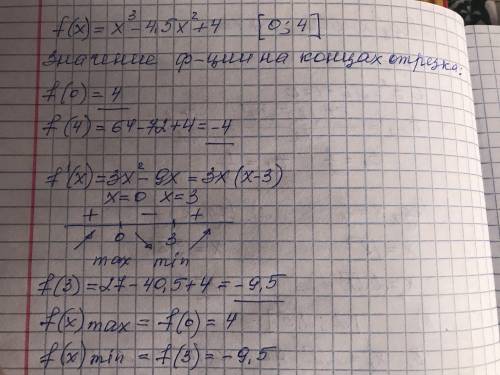 f(x) = x³ - 4,5x² + 4 [0; 4]
Значение ф-ции на концах отрезка:
f(0) = 4
f(4) = 64 - 72 + 4 = -4
f'(x) = 3x² - 9x = 3x(x-3)
x=0 x=3
+ - +
0 3
max min
f(3) = 27 - 40,5 + 4 = -9,5
f(x) max = f(0) = 4
f(x) min = f(3) = -9,5